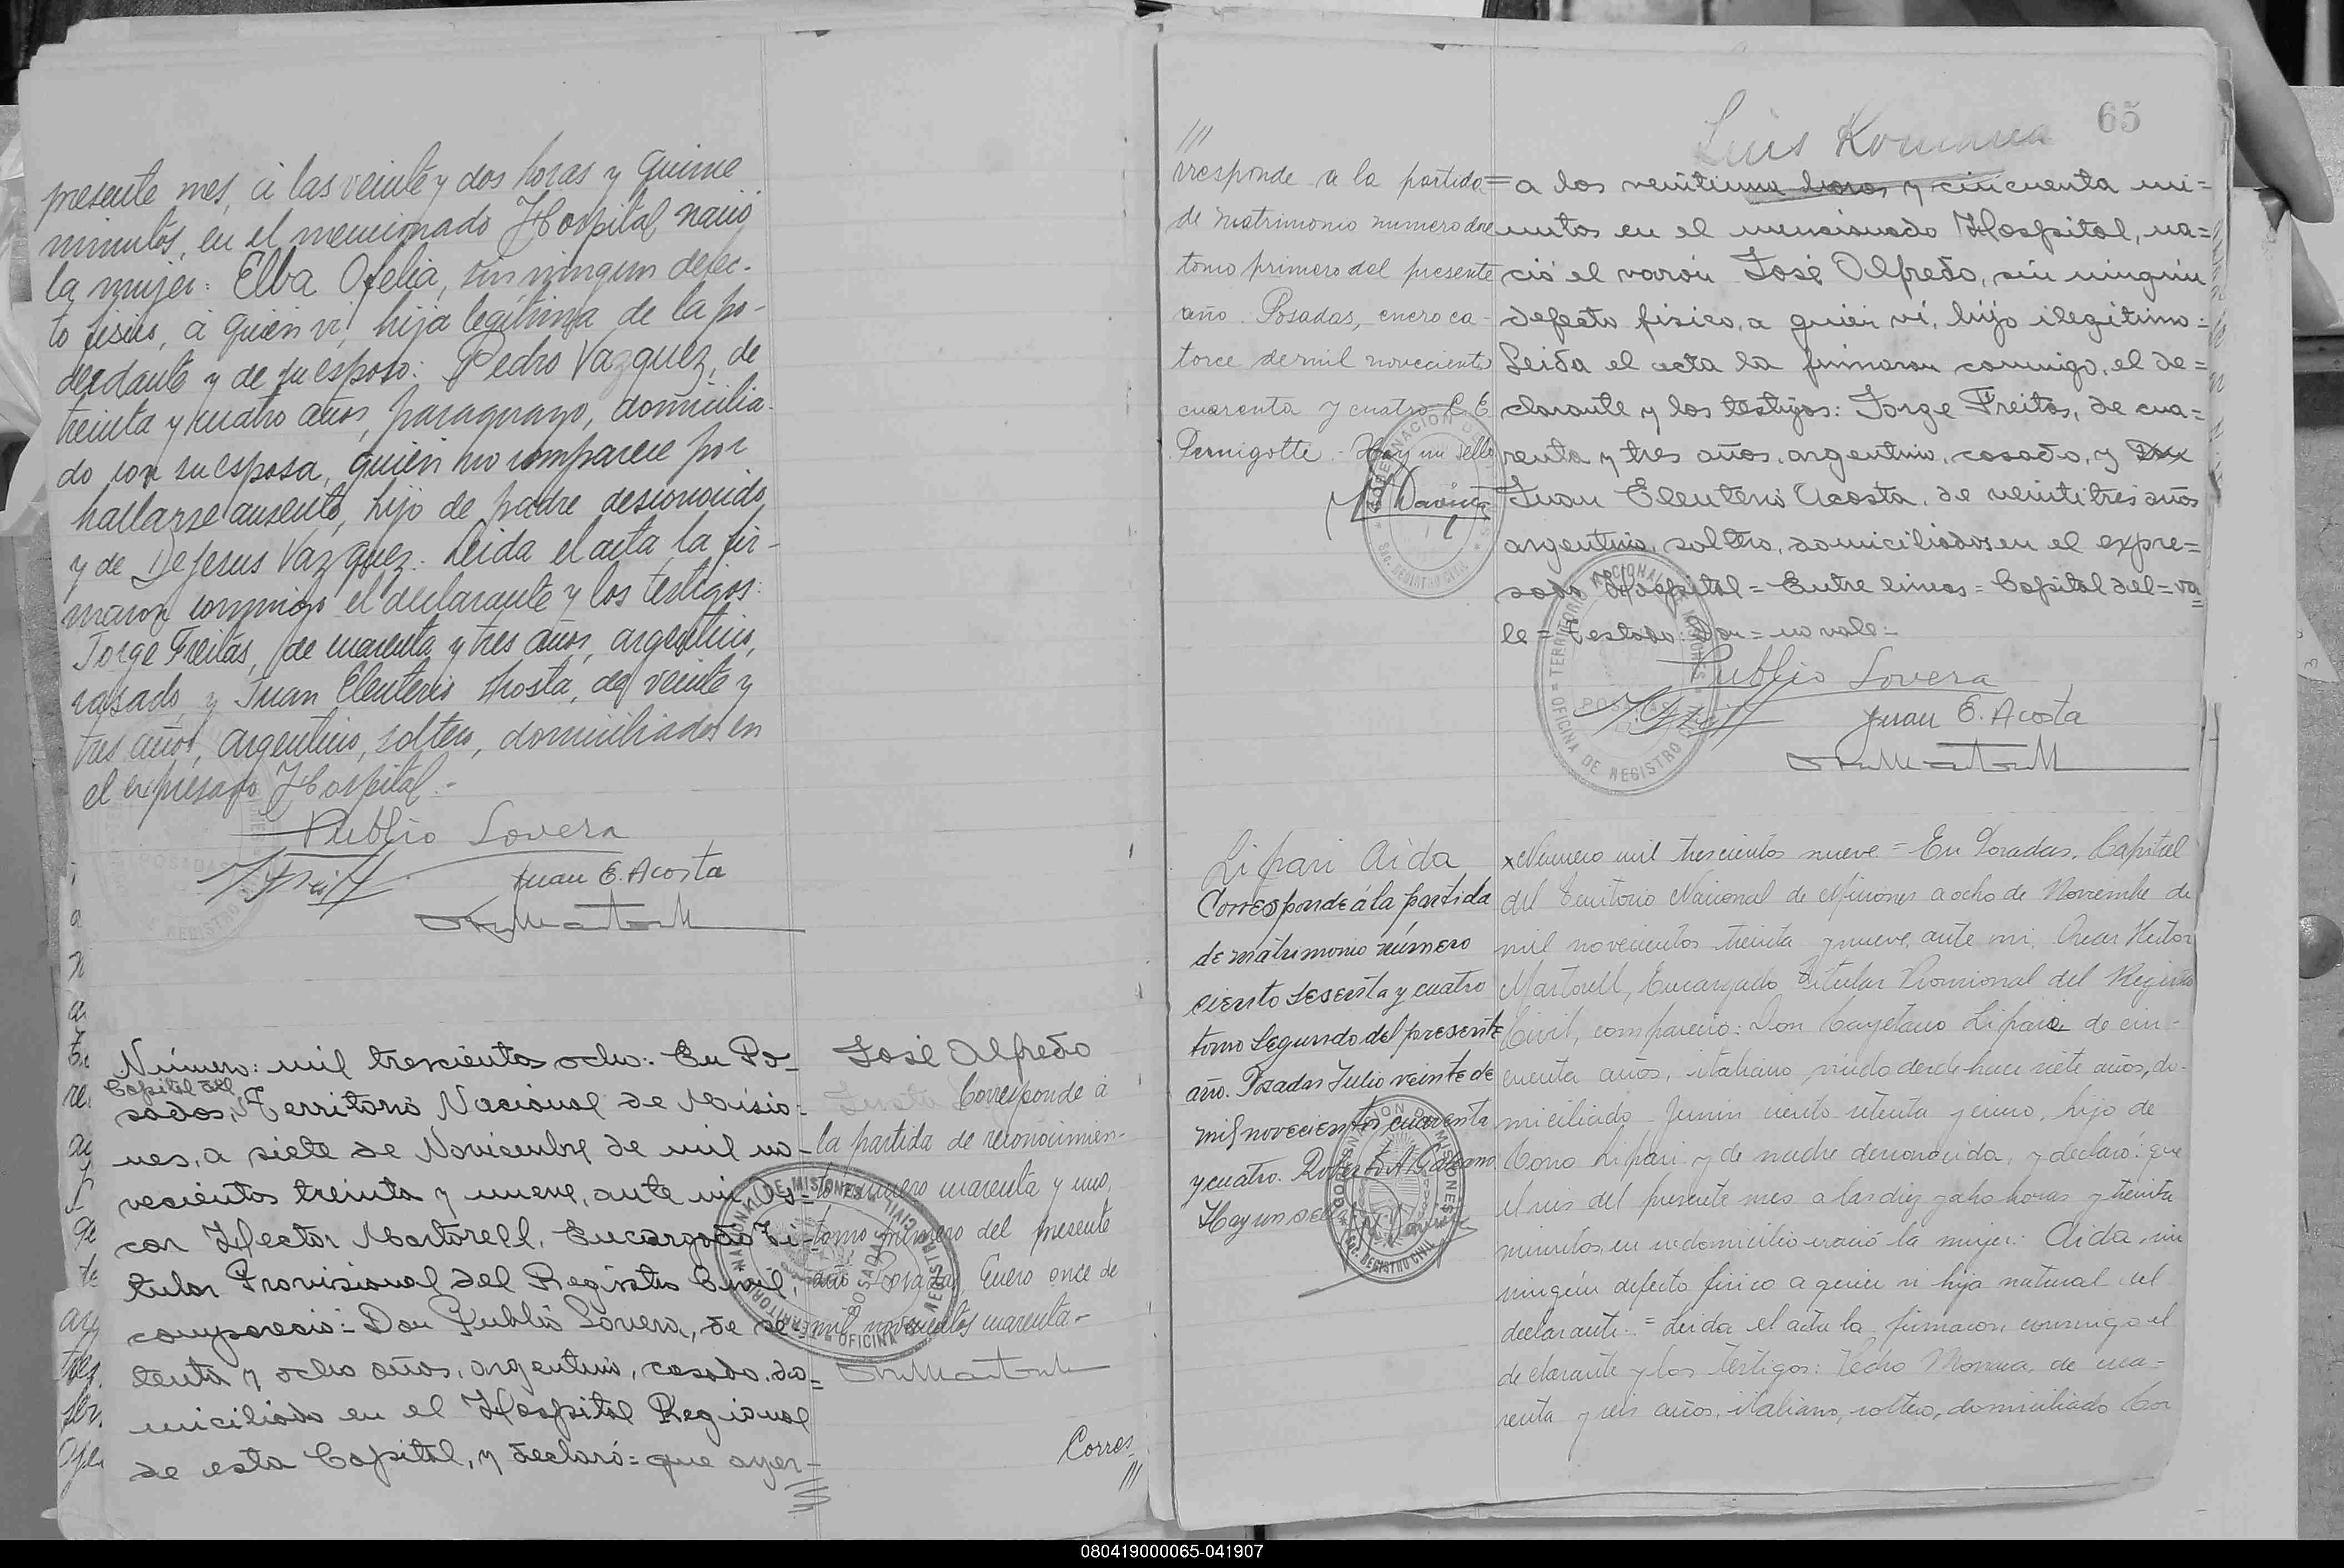 presente mes, á las veinte y dos horas y quince
minutos, en el mencionado Hospital nació
la mujer: Elba Ofelia, sin ningun defec-
to físico, á quien ví, hija legítima de la po-
derdante y de su esposo: Pedro Vazquez, de
treinta y cuatro años, paraguayo, domicilia-
do con su esposa, quien no comparece por
hallarse ausente, hijo de padre desconocido
y de Dejesus Vazquez. Leida el acta la fir-
maron conmigo el declarante y los testigos:
Jorge Freitas, de cuarenta y tres años, argentino,
casado y Juan Eleuterio Acosta, de veinte y
tres años, argentino, soltero, domiciliados en
el expresado Hospital.-
Publio Lovera
Juan E. Acosta
Número: mil trescientos ocho: En Po-
Capital del
sadas, Territorio Nacional de Misio-
nes, a siete de Noviembre de mil no-
vecientos treinta y nueve, ante mi, Os-
car Hector Martorell, Encargado Ti-
tular Provisional del Registro Civil,
compareció: Don Publio Lovera, de se-
tenta y ocho años, argentino, casado, do-
miciliado en el Hospital Regional
de esta Capital, y declaró: que ayer-
José Alfredo
Corresponde á
la partida de reconocimien-
to número cuarenta y uno,
tomo primero del presente
año Posadas, Enero once de
mil novecientos cuarenta-
Corres
///
65
Luis Romana
///
rresponde a la partida
de matrimonio numero doce
tomo primero del presente
año. Posadas, enero ca-
torce de mil novecientos
cuarenta y cuatro C E
Pernigotte.- Hay un sello
=a las veintiuna horas y cincuenta mi=
nutos en el mencionado Hospital, na=
ció el varón José Alfredo, sin ningún
defecto físico, a quien ví, hijo ilegítimo=
Leida el acta la firmaron conmigo, el de=
clarante y los testigos: Jorge Freitas, de cua=
renta y tres años, argentino, casado, y Don
Juan Eleuterio Acosta, de veintitres años
argentino, soltero, domiciliados en el expre=
sado Hospital = Entre lineas = Capital del = va=
le = Testado: Don = no vale =
TERRITORIO NACIONAL DE MISIONES
POSADAS
OFICINA DE REGISTRO CIVIL
Publio Lovera
Juan E. Acosta
Lipari Aida
Corresponde á la partida
de matrimonio número
ciento sesenta y cuatro
tomo segundo del presente
año. Posadas Julio veinte de
mil novecientos cuarenta
y cuatro. Roberto A Galeano
Hay un sello
GOBERNACION DE MISIONES
Sec. REGISTRO CIVIL
x Número mil trescientos nueve = En Posadas, Capital
del Territorio Nacional de Misiones a ocho de Noviembre de
mil novecientos treinta y nueve, ante mi, Oscar Hector
Martorell, Encargado Titular Provisional del Registro
Civil, compareció: Don Cayetano Lipari de cin-
cuenta años, italiano, viudo desde hace siete años, do-
miciliado Junin ciento setenta y cinco, hijo de
Cono Lipari y de madre desconocida, y declaró: que
el seis del presente mes a las diez y ocho horas y treinta
minutos, en su domicilio nació la mujer: Aida, sin
ningún defecto físico a quien vi hija natural del
declarante. = Leida el acta la firmaron conmigo el
declarante y los testigos: Pedro Monaca, de cua=
renta y seis años, italiano, soltero, domiciliado Cor
080419000065-041907